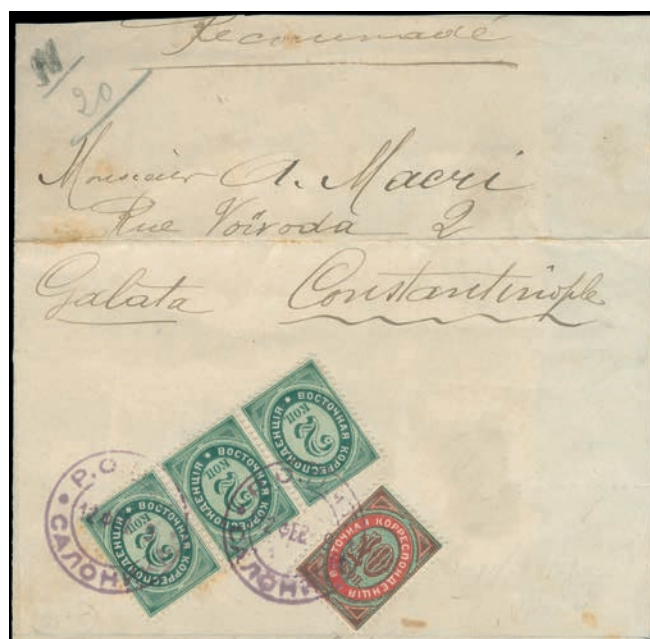 Recommandé
20
Monsieur A. Macri
Rue Voïvoda 2
Galata Constantinople
ВОСТОЧНАЯ КОРРЕСПОНДЕНЦІЯ
2 КОП
ВОСТОЧНАЯ КОРРЕСПОНДЕНЦІЯ
2 КОП
ВОСТОЧНАЯ КОРРЕСПОНДЕНЦІЯ
2 КОП
КОРРЕСПОНДЕНЦІЯ
10
Р.О
САЛОН
ФЕВ
САЛОН